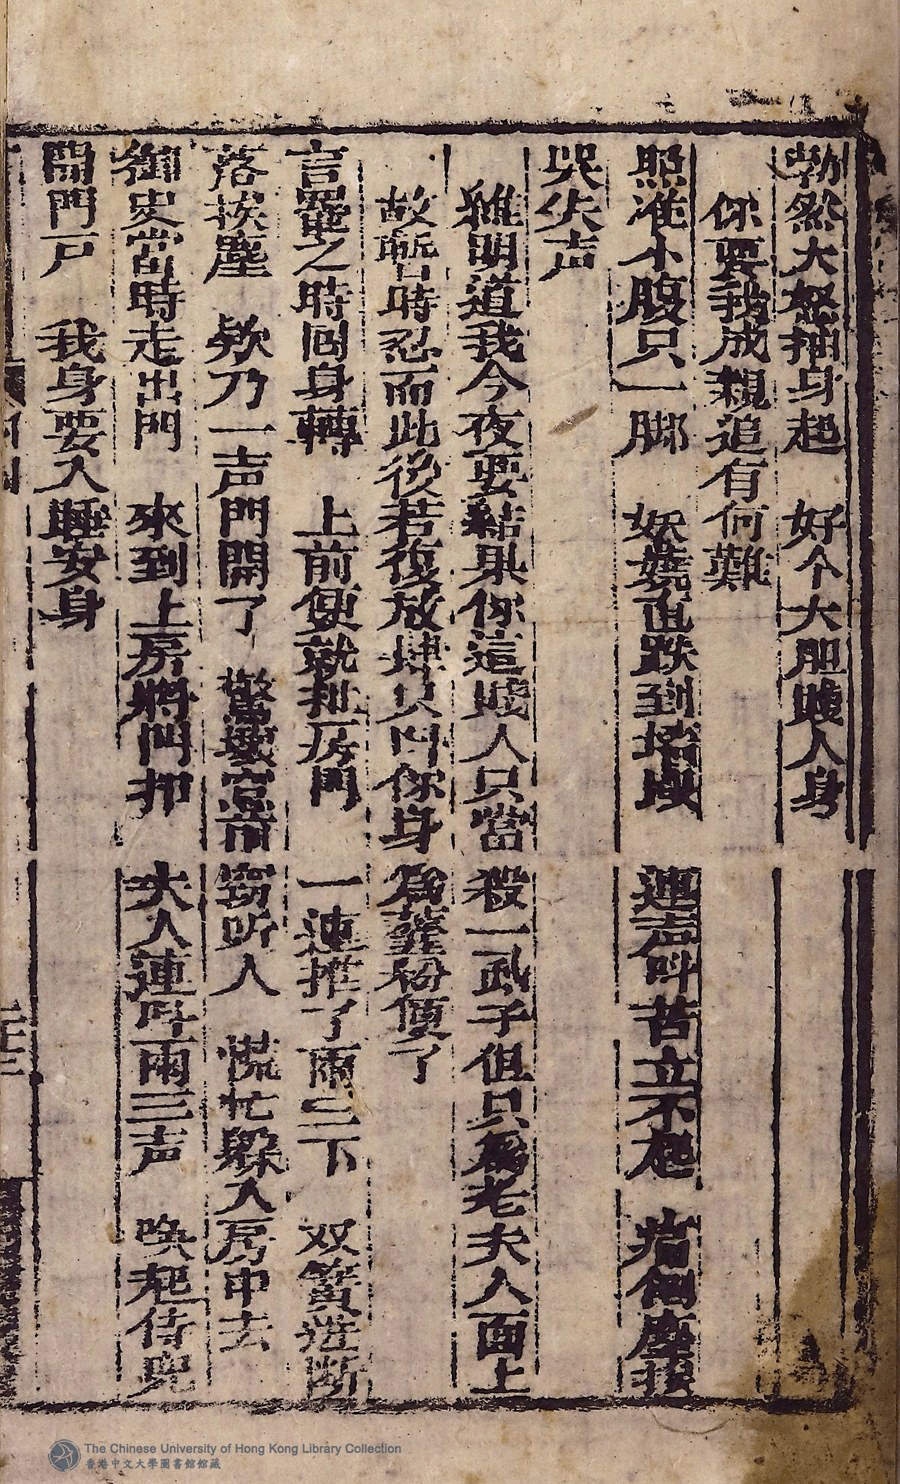 勃然大怒抽身起　好个大胆賤人身
你要我成親追有何難
照准小腹只一脚　妖嬈直跌到墻　連声叫苦立不起　痛倒塵埃
哭失声
雅明道我今夜要結果你這賤人只當殺一虱子但只爲老夫人面上
故暫時忍而此後若復放肆只問你身爲虀粉便了
言罷之時囬身轉　上前便就扯房門　一連推了兩三下　双簧迸断
落挨塵　欸乃一声門開了　驚壞窓前窃听人　慌忙躱入房中去
御史當時走出門　來到上房將門叩　夫人連呌兩三声　喚起侍兒
開門戸　我身要入睡安身
二十三
The Chinese University of Hong Kong Library Collection
香港中文大學圖書館館藏